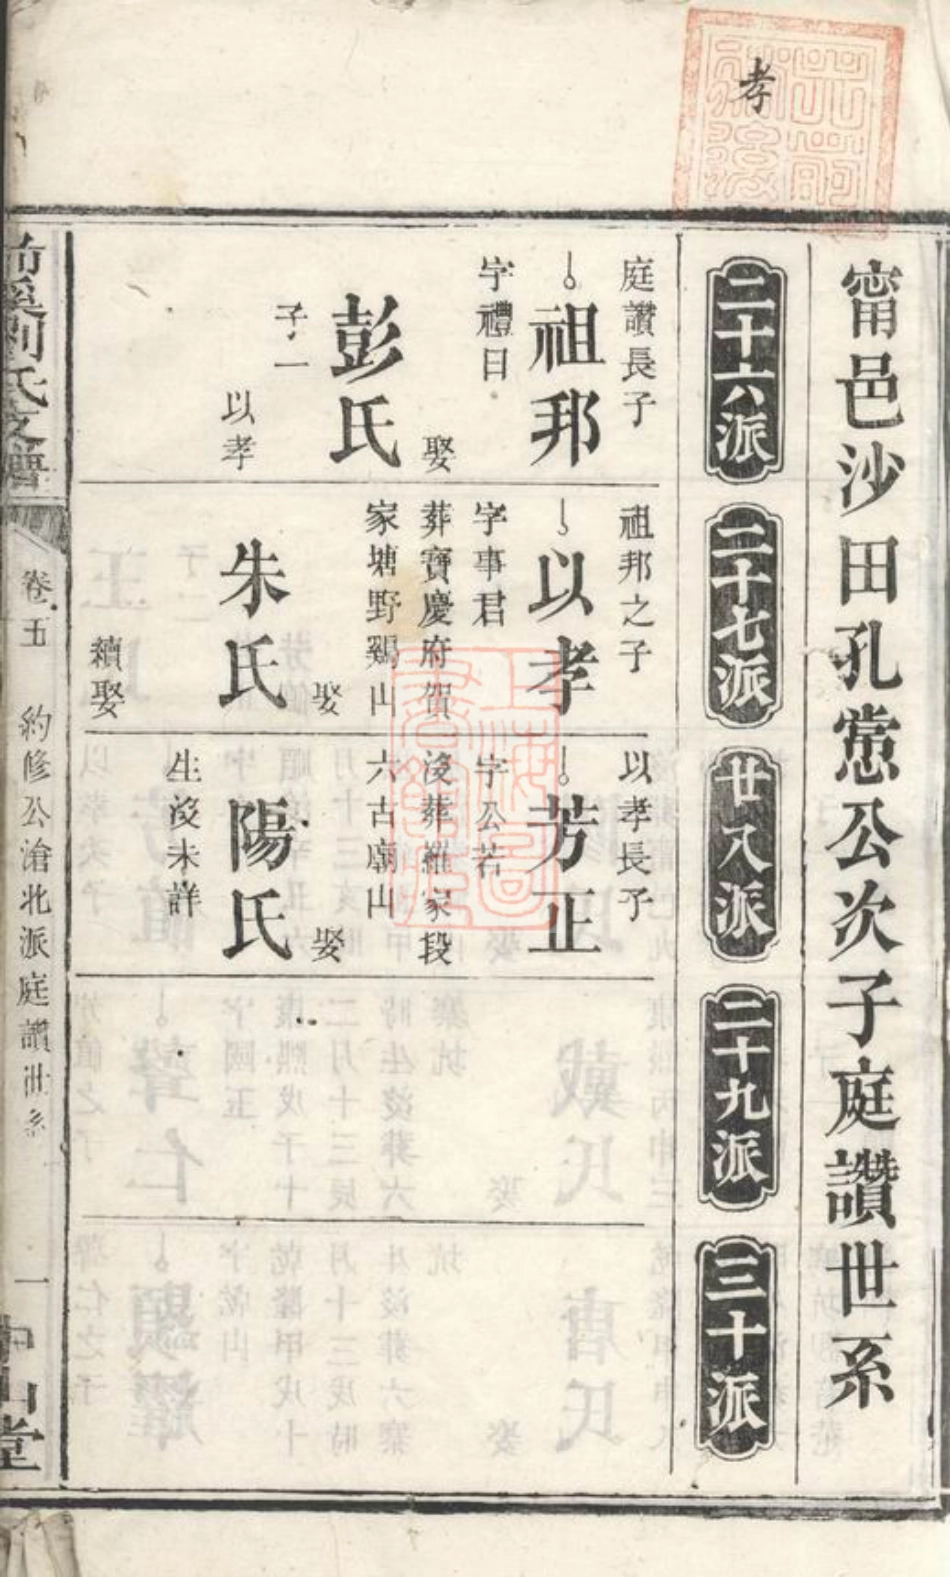 孝
甯邑沙田孔常公次子庭讚世系
二十六派
二十七派
廿八派
二十九派
三十派
庭讚長子
祖邦
字禮日
娶
彭氏
子一
以孝
祖邦之子
以孝
字事君
葬寶慶府賀
家塘野鷄山
娶
朱氏
續娶
以孝長子
芳正
字公若
沒葬羅家段
六古廟山
娶
陽氏
生沒未詳
劉氏支譜
卷五
約修公滄北派庭讚世系
一
山堂
上海圖書館藏